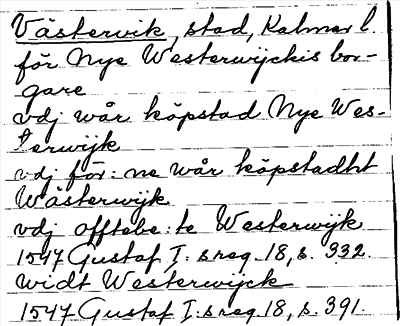 Västervik, stad, Kalmar l.
för Nye Westerwijckis bor-
gare
vdj wår köpstad Nye Wes-
terwijk
vdj för: ne wår köpstadht
Wästerwijk
vdj offtebe: te Westerwijk
1547 Gustaf I: s reg. 18, s. 332.
widt Westerwijck
1547 Gustaf I: s reg. 18, s. 391.